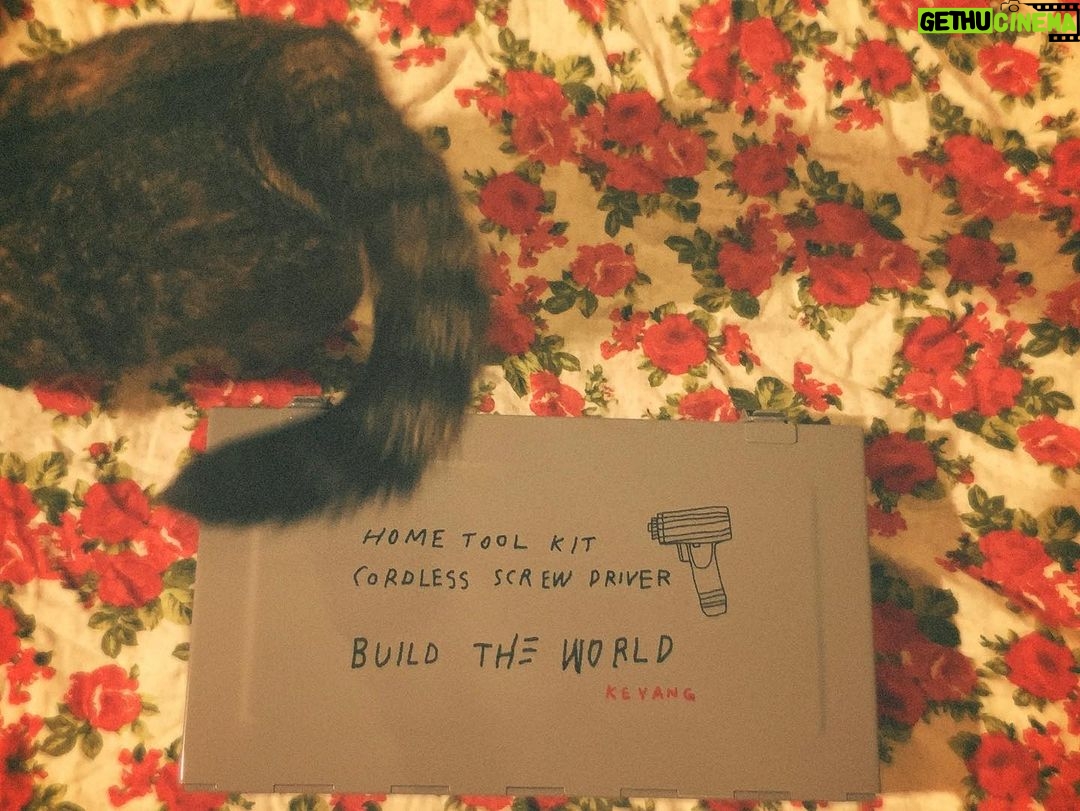 GETHUCINEMA
HOME TOOL KIT
CORDLESS SCREW DRIVER
BUILD THE WORLD
KEYANG